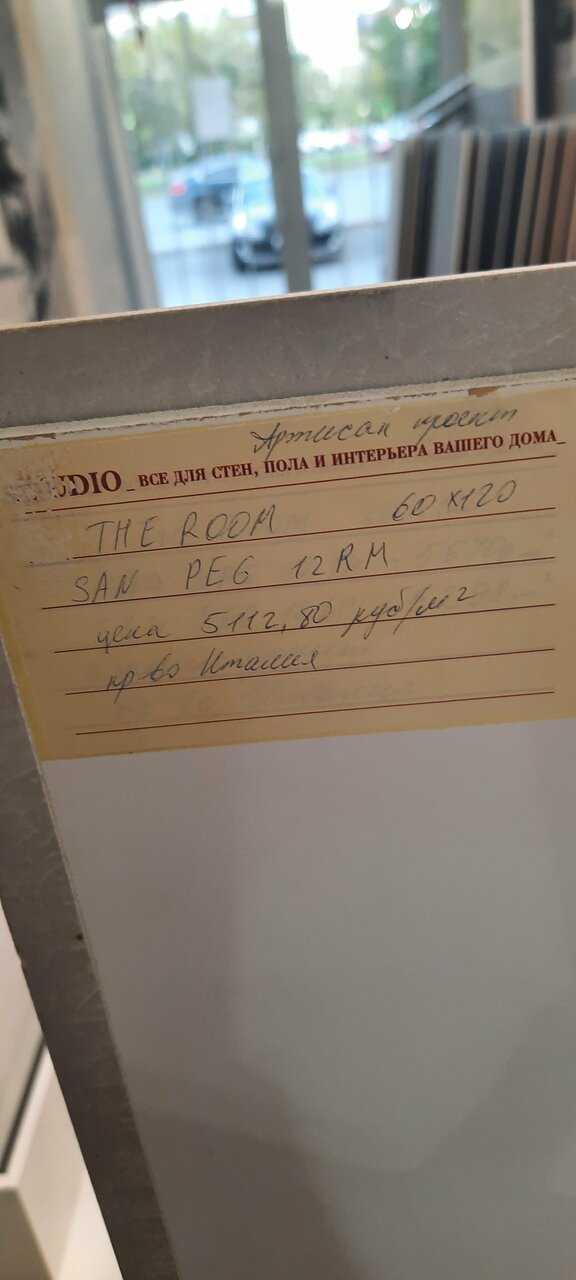 Артисан проект
STUDIO _ ВСЕ ДЛЯ СТЕН, ПОЛА И ИНТЕРЬЕРА ВАШЕГО ДОМА_
THE ROOM 60×120
SAN PEG 12RM
цена 5112,80 руб/м2
пр во Италия